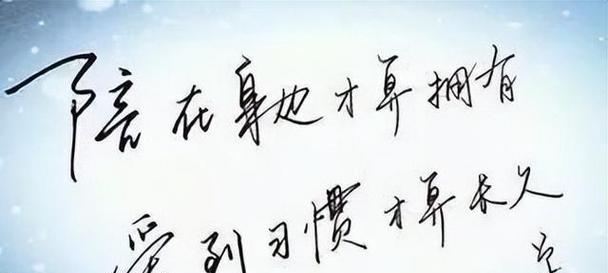 陪在身边才算拥有
爱到习惯才算长久